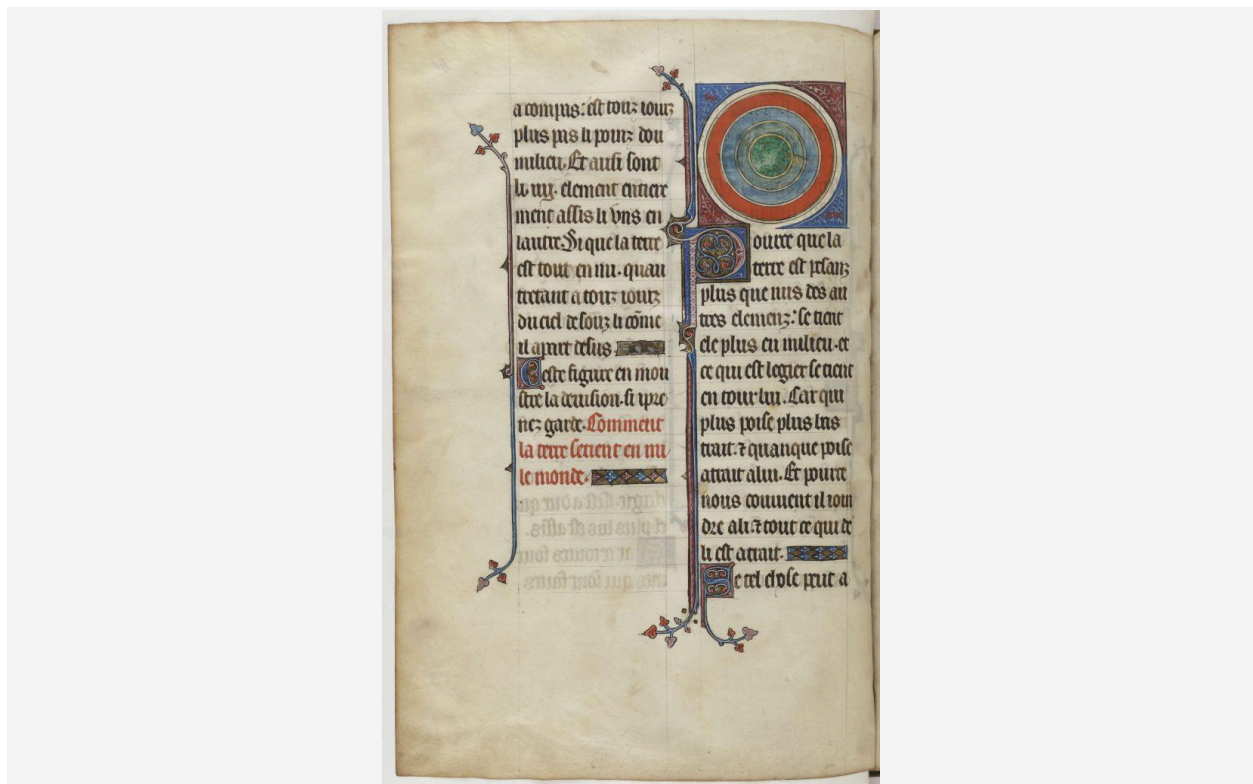 a compas: est touz iourz
plus pres li poinz dou
milieu. Et ausi sont
li iiij. element entiere
ment assis li vns en
lautre. Si que la terre
est tout en mi. quau
tretant a touz iourz
du ciel desouz li cōme
il apert desus
Ceste figure en mou
stre la deuision. si ipre
nez garde. Comment
la terre setient en mi
le monde.
Pource que la
terre est pesanz
plus que nus des au
tres elemenz: se tient
ele plus en milieu. et
ce qui est legier se tient
en tour lui. Car qui
plus poise plus bas
trait. ⁊ quanque poise
atrait alui. Et pource
nous couuient il ioin
dre ali. ⁊ tout ce qui de
li est atrait.
Se tel chose peut a